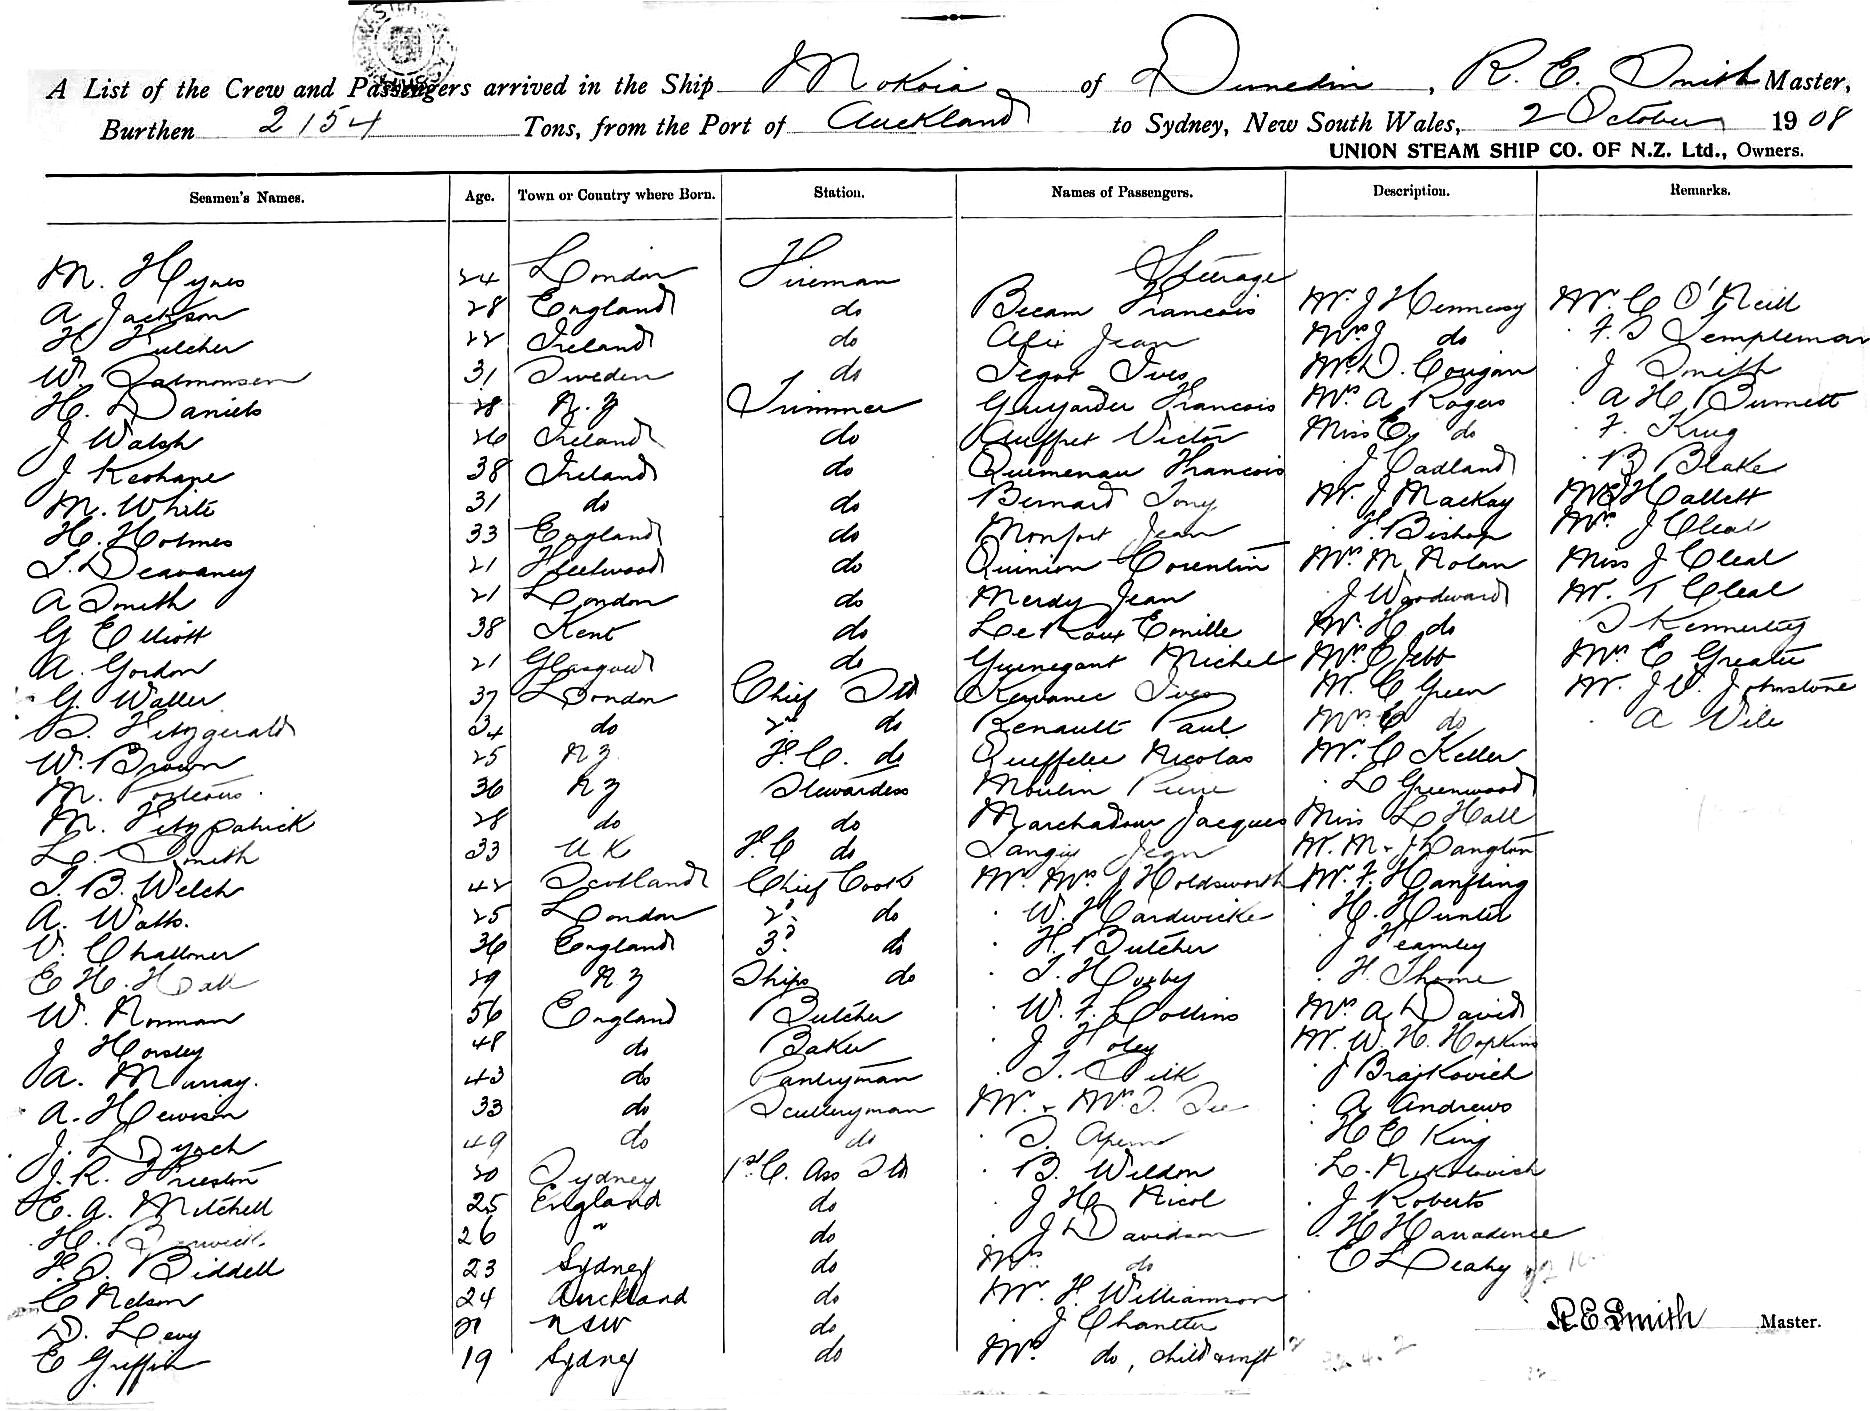 A List of the Crew and Passengers arrived in the Ship Mokoia of Dunedin, R. E. Smith Master,
Burthen 2154 Tons, from the Port of Auckland to Sydney, New South Wales, 2 October 1908
UNION STEAM SHIP CO. OF N.Z. Ltd., Owners.
Seamen's Names. Age. Town or Country where Born. Station. Names of Passengers. Description. Remarks.
Steerage
M. Hynes 24 London Fireman
A Jackson 28 England do Becam Francois Mr. J Hennessy Mr. C O'Neill
H Fulcher 22 Ireland do Afix Jean Mrs J do F. S Templeman
W. Salmonsen 31 Sweden do Tegot Ives Mr. D. Cougan J Smith
H. Daniels 28 N. Z Trimmer Guyarder Francois Mrs. A Rogers A H Burnett
J Walsh 26 Ireland do Auffret Victor Miss E. do F. Krug
J Keohane 38 Ireland do Quemenau Francois J Cadland B Blake
M. White 31 do do Bernard Tony Mr. J Mackay Hallett
H. Holmes 33 England do Monfort Jean F. Bishop Mrs. J Cleal
T. Deavaney 21 Fleetwood do Quinion Corentin Mrs. M Nolan Miss J Cleal
A Smith 21 London do Merdy Jean J Woodward Mr. T Cleal
G Elliott 38 Kent do Le Roux Emille Mr. H do S Kennerley
A. Gordon 21 Glasgow do Guenegant Michel Mrs. C Jebb Mrs E Greater
G. Waller 37 London Chief Std Kervanec Ives Mr. C Green Mr. J V. Johnstone
D. Fitzgerald 34 do 2nd do Renault Paul Mrs C do A Wile
W. Brown 25 NZ F. C. do Queffelec Nicolas Mr. C Keller
M. Porteous 36 NZ Stewardess Moulin Pierre L Greenwood
M. Fitzpatrick 28 do do Marchadour Jacques Miss L Hall
L. Smith 33 UK F. C do Tangiy Jean Mr. M. J Langton
T. B. Welch 42 Scotland Chief Cook Mr. Mrs J Holdsworth Mr. F. Hanfling
A. Watts. 25 London 2d. do W. Hardwicke H. Hunter
V. Challoner 36 England 3d. do H. Butcher J Hearnley
E H. Hall 29 NZ Ships do T. Horby F. Thorne
W. Norman 56 England Butcher W. F. Collins Mrs A David
J Horsley 48 do Baker J Foley Mr. W. H. Hopkins
A. Murray. 43 do Pantryman T. Silk J Brajkovich
A. Hewison 33 do Scullleryman Mr. & Mrs. A Andrews
J. Lynch 49 do do S. H E King
J. R. Preston 20 Sydney 1st. C. Ass Std B. Weldon L. Nikolovich
E. A. Mitchell 25 England do J H Nicol J Roberts
H. 26 " do J Davidson H Harradence
F. S. Biddell 23 Sydney do Mrs do E L Leahy
C Nelson 24 Auckland do Mr. F. Williamson
D. Levy 21 NSW do J Chantler
E Griffin 19 Sydney do Mrs. do, child & inft
R E Smith Master.